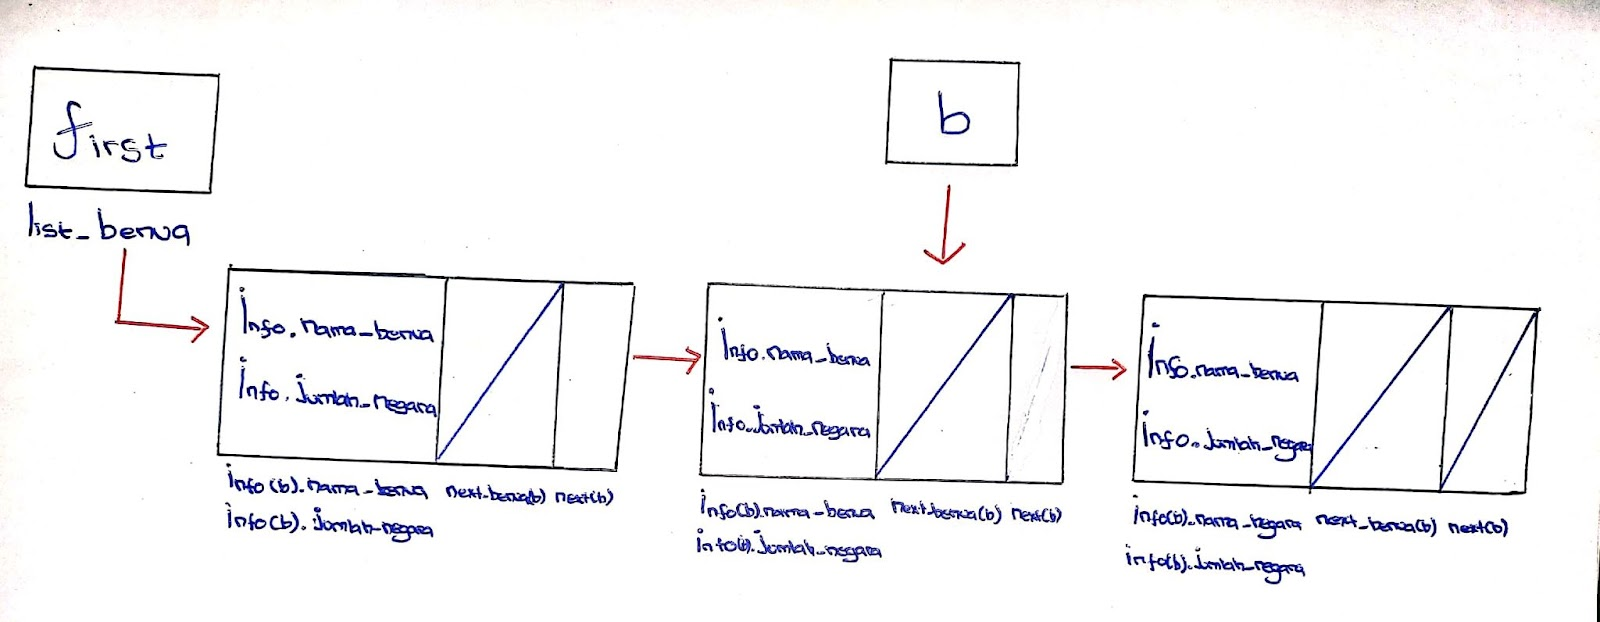 first
b
list_benua
Info.nama_benua
Info.jumlah_negara
Info.nama_benua
Info.jumlah_negara
Info.nama_benua
Info.jumlah_negara
info(b).nama_benua next_benua(b) next(b)
info(b).jumlah_negara
info(b).nama_benua next_benua(b) next(b)
info(b).jumlah_negara
info(b).nama_negara next_benua(b) next(b)
info(b).jumlah_negara